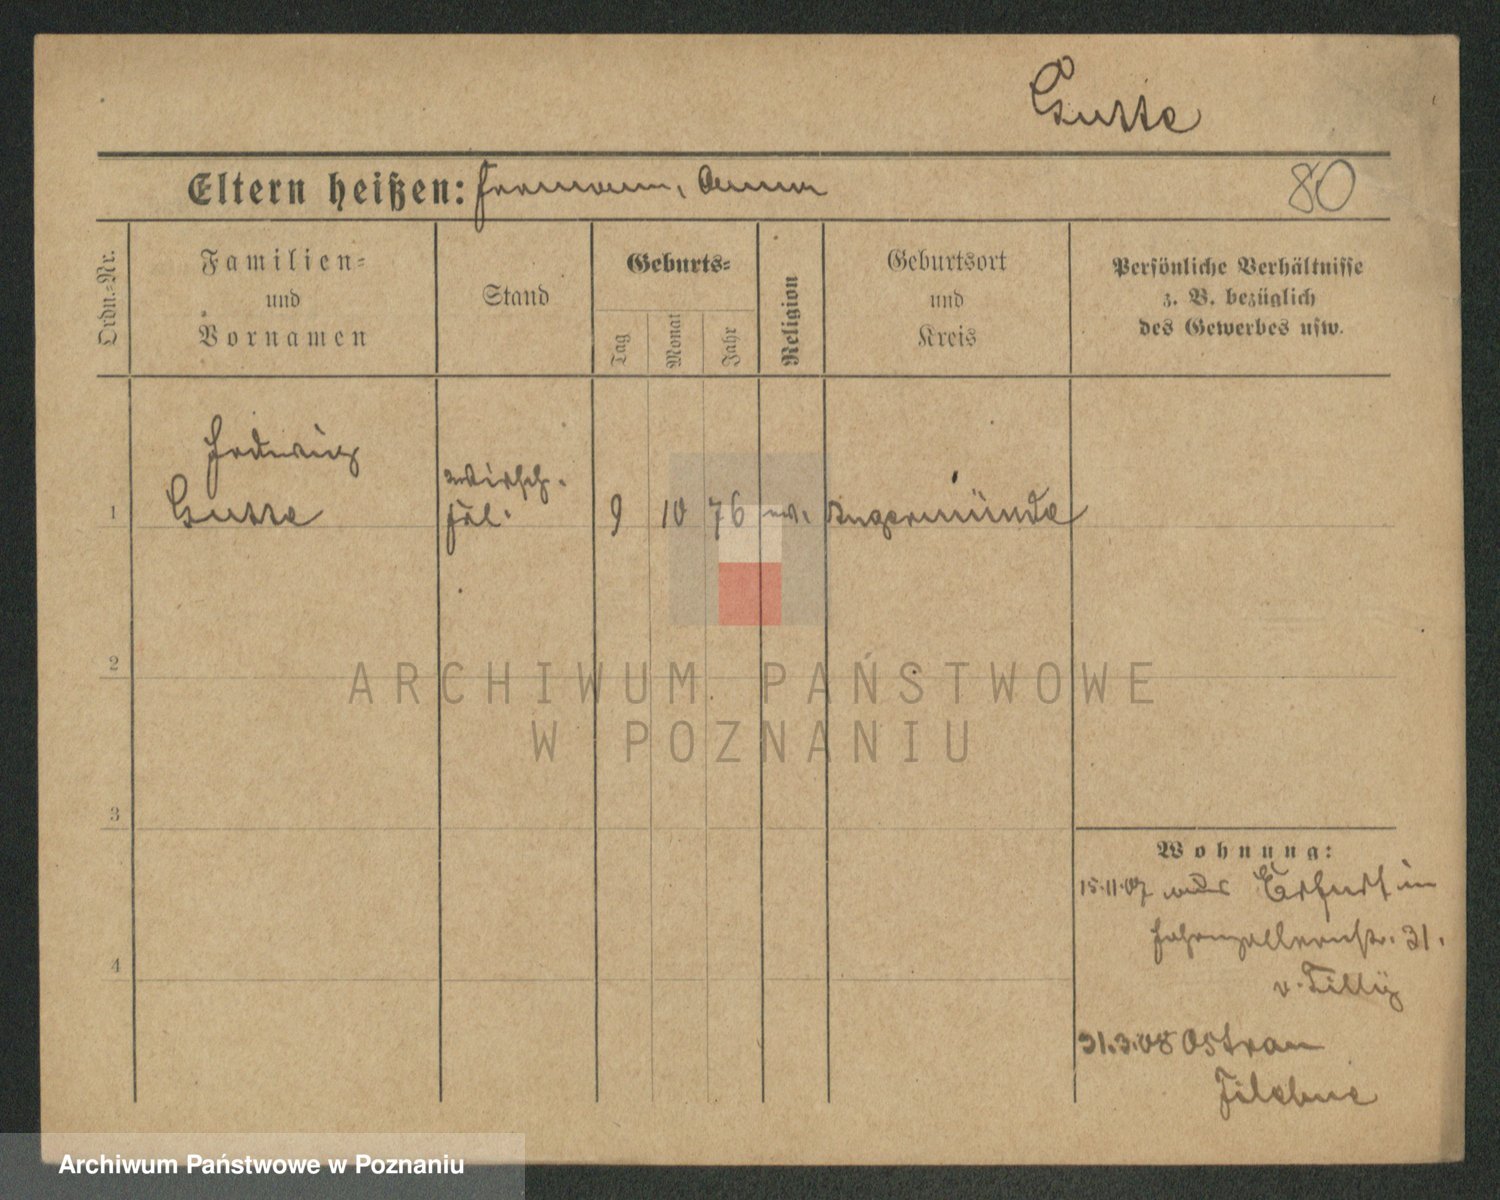 Eltern heißen: Hermann, Anna
80
Ordn.-Nr.
Familien-
und
Vornamen
Stand
Geburts-
Tag
Monat
Jahr
Religion
Geburtsort
und
Kreis
Persönliche Verhältnisse
z. B. bezüglich
des Gewerbes usw.
Hedwig
1
Wirtsch.
Frl.
9 10 76 ev. Angermünde
2
ARCHIWUM PAŃSTWOWE
W POZNANIU
3
Wohnung:
15.11.07 aus Erfurt in
Hohenzollernstr. 31.
v. Tilly
4
31.3.08 Ostrau
Filehne
Archiwum Państwowe w Poznaniu